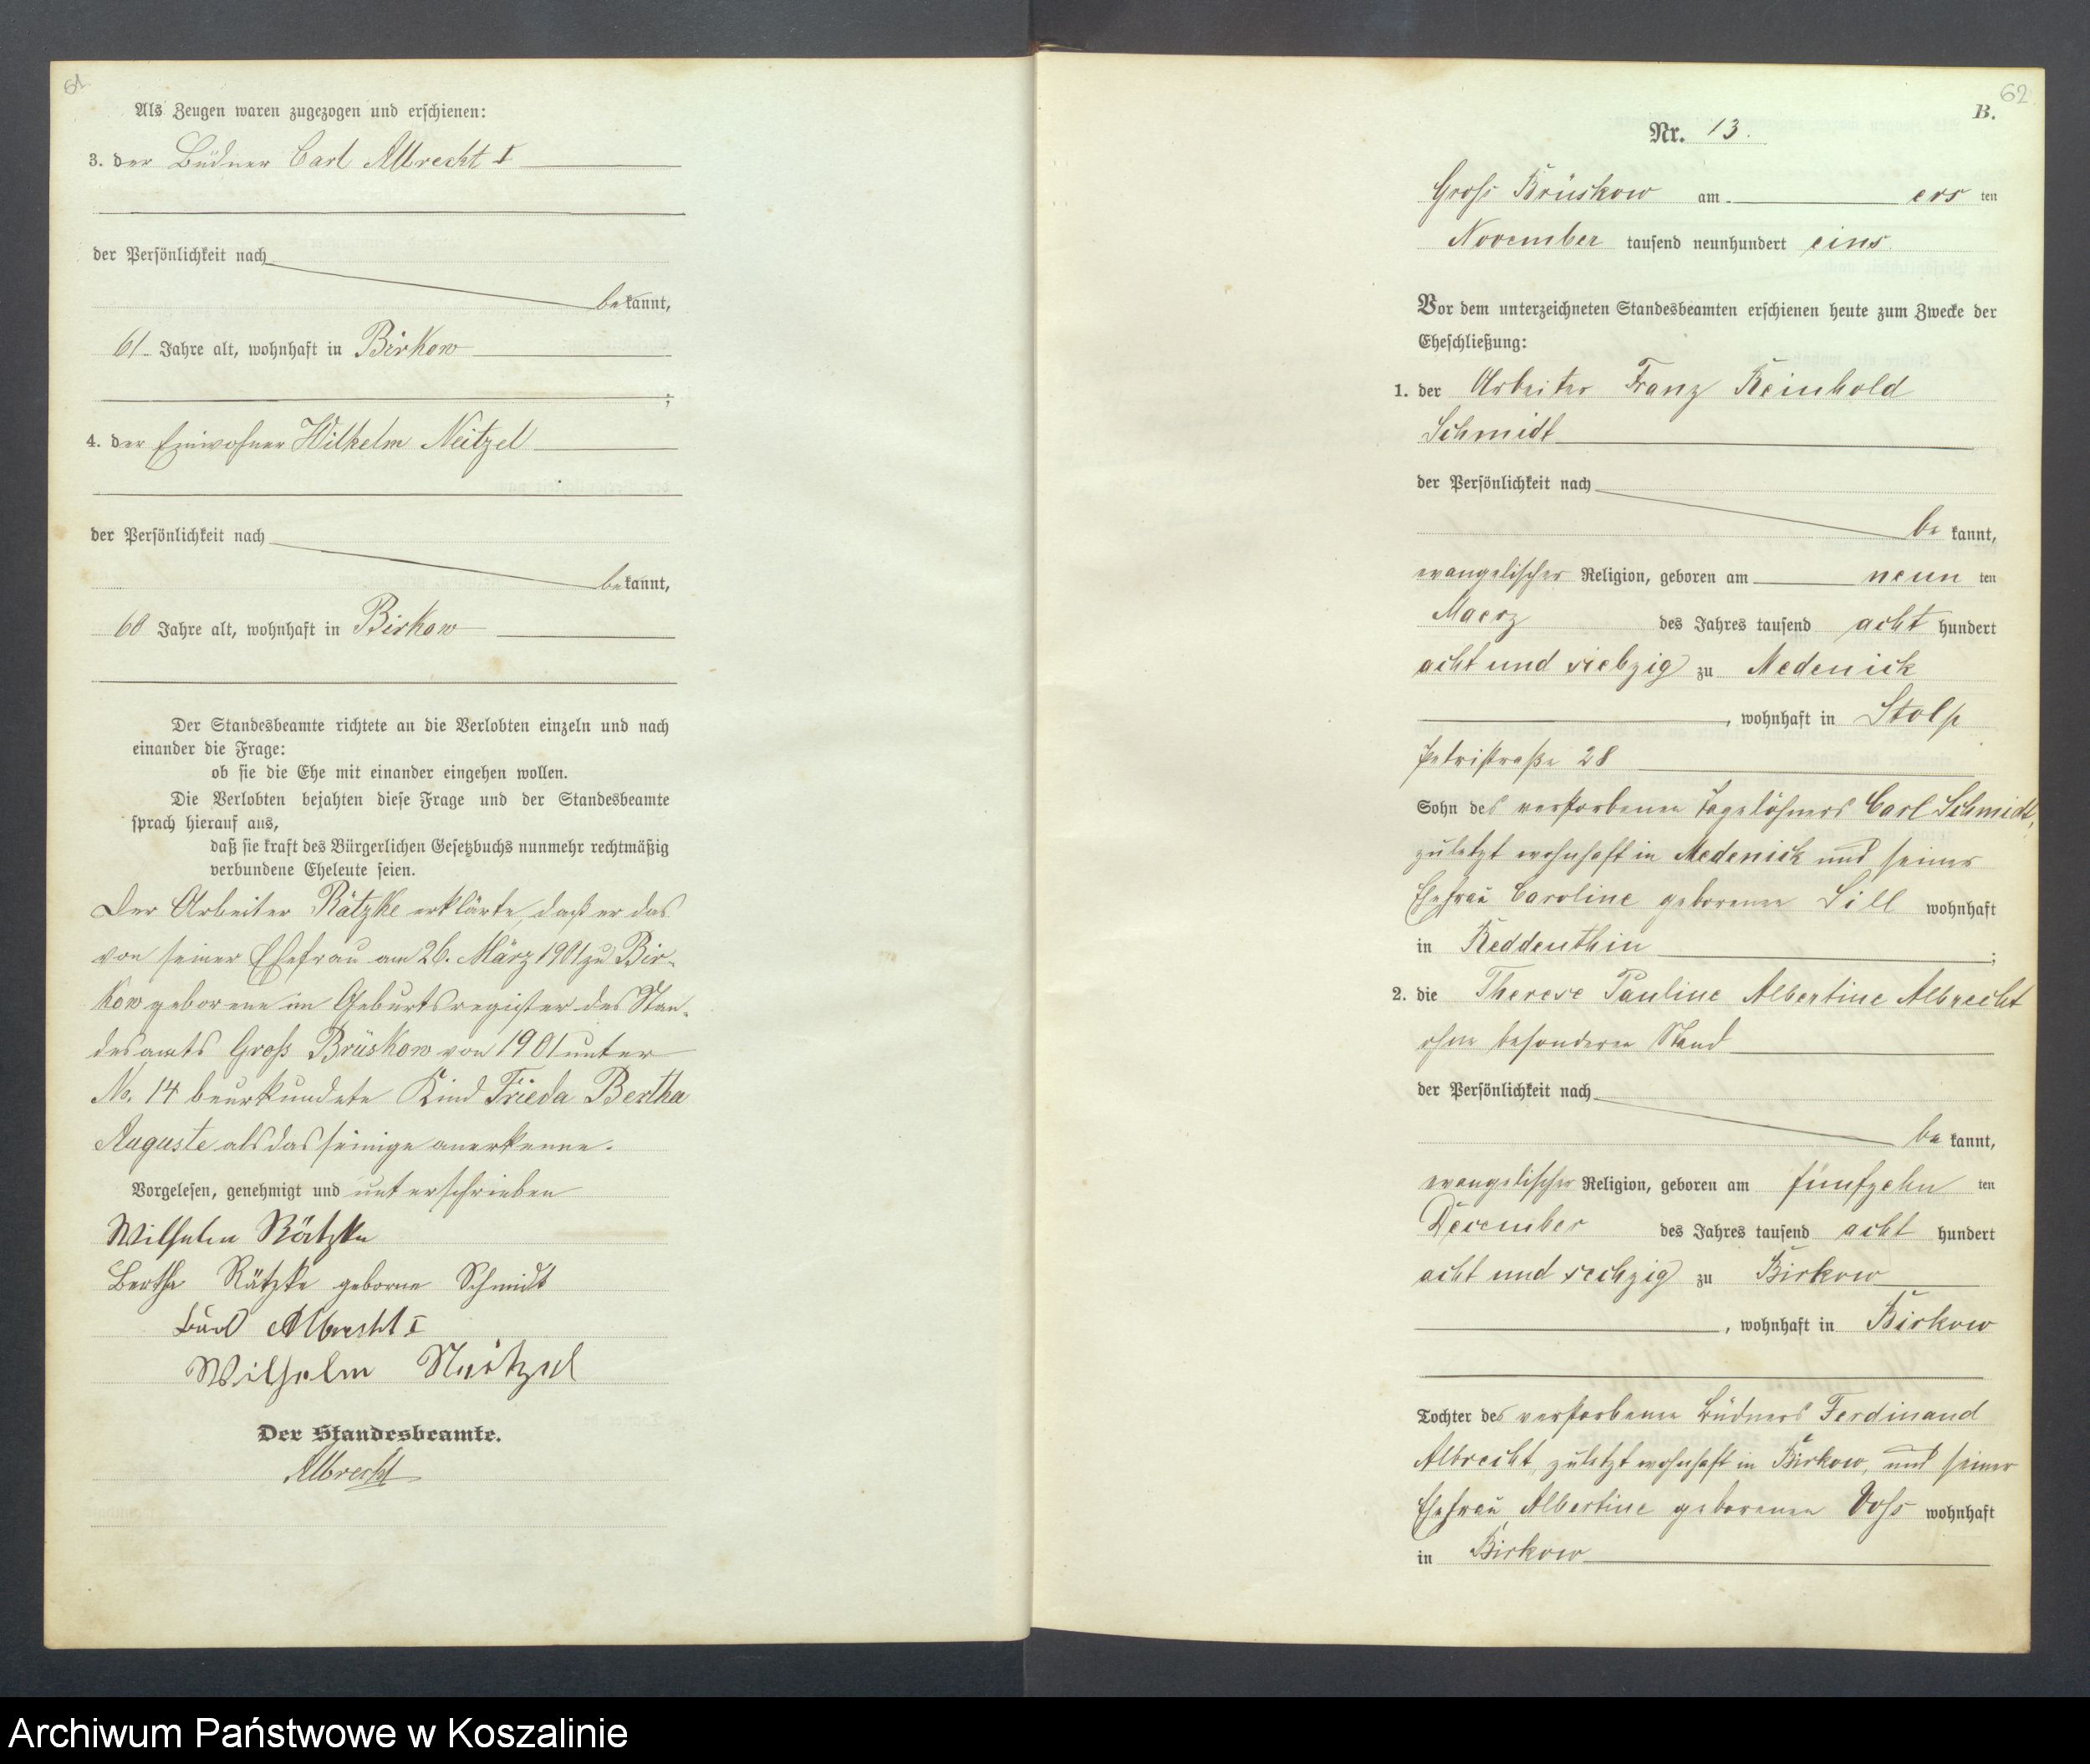 61.
Als Zeugen waren zugezogen und erschienen:
3. der Büdner Carl Albrecht I
der Persönlichkeit nach
bekannt,
61 Jahre alt, wohnhaft in Birkow
;
4. der Einwohner Wilhelm Neitzel
der Persönlichkeit nach
bekannt,
60 Jahre alt, wohnhaft in Birkow
Der Standesbeamte richtete an die Verlobten einzeln und nach
einander die Frage:
ob sie die Ehe mit einander eingehen wollen.
Die Verlobten bejahten diese Frage und der Standesbeamte
sprach hierauf aus,
daß sie kraft des Bürgerlichen Gesetzbuchs nunmehr rechtmäßig
verbundene Eheleute seien.
Der Arbeiter Rätzke erklärte, daß er das
von seiner Ehefrau am 26. März 1901 zu Bir-
kow geborene im Geburtsregister des Stan-
desamts Groß Brüskow von 1901 unter
No. 14 beurkundete Kind Frieda Bertha
Auguste als das seinige anerkenne.
Vorgelesen, genehmigt und unterschrieben
Wilhelm Rätzke
Bertha Rätzke geborne Schmidt
Carl Albrecht I
Wilhelm Neitzel
Der Standesbeamte.
Albrecht
62.
B.
Nr. 13.
Groß Brüskow am ersten
November tausend neunhundert eins.
Vor dem unterzeichneten Standesbeamten erschienen heute zum Zwecke der
Eheschließung:
1. der Arbeiter Franz Reinhold
Schmidt
der Persönlichkeit nach
bekannt,
evangelischer Religion, geboren am neunten
Maerz des Jahres tausend acht hundert
acht und siebzig zu Medenick
, wohnhaft in Stolp
Petristraße 28
Sohn des verstorbenen Tagelöhners Carl Schmidt,
zuletzt wohnhaft in Medenick und seiner
Ehefrau Caroline geborenen Sill wohnhaft
in Reddenthin ;
2. die Therese Pauline Albertine Albrecht
ohne besonderen Stand
der Persönlichkeit nach
bekannt,
evangelischer Religion, geboren am fünfzehnten
December des Jahres tausend acht hundert
acht und sechzig zu Birkow
, wohnhaft in Birkow
Tochter des verstorbenen Büdners Ferdinand
Albrecht, zuletzt wohnhaft in Birkow, und seiner
Ehefrau Albertine geborenen Voß wohnhaft
in Birkow
Archiwum Państwowe w Koszalinie